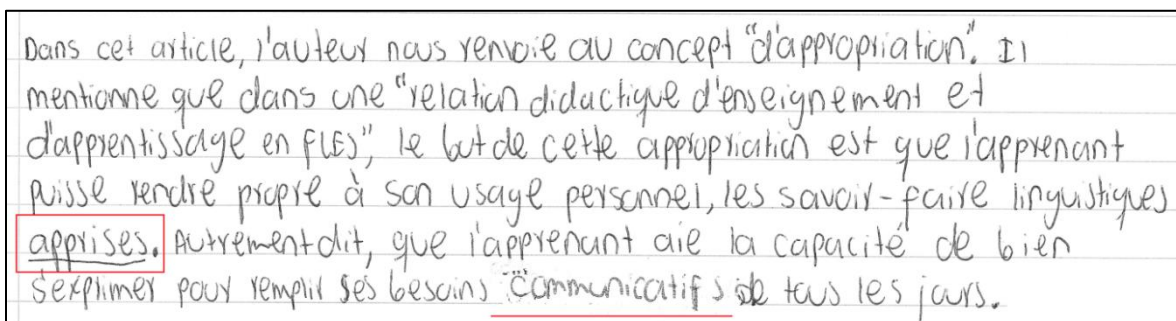 Dans cet article, l'auteur nous renvoie au concept "d'appropriation". Il
mentionne que dans une "relation didactique d'enseignement et
d'apprentissage en FLES", le but de cette appropriation est que l'apprenant
puisse rendre propre à son usage personnel, les savoir-faire linguistiques
apprises. Autrement dit, que l'apprenant aie la capacité de bien
s'exprimer pour remplir ses besoins communicatifs de tous les jours.